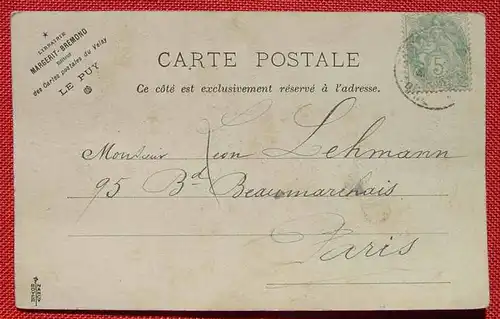 LIBRAIRIE
MARGERIT-BREMOND
Éditeur
des Cartes postales du Velay
LE PUY
CARTE POSTALE
Ce côté est exclusivement réservé à l'adresse.
5
Monsieur Léon Lehmann
95 Bd Beaumarchais
Paris